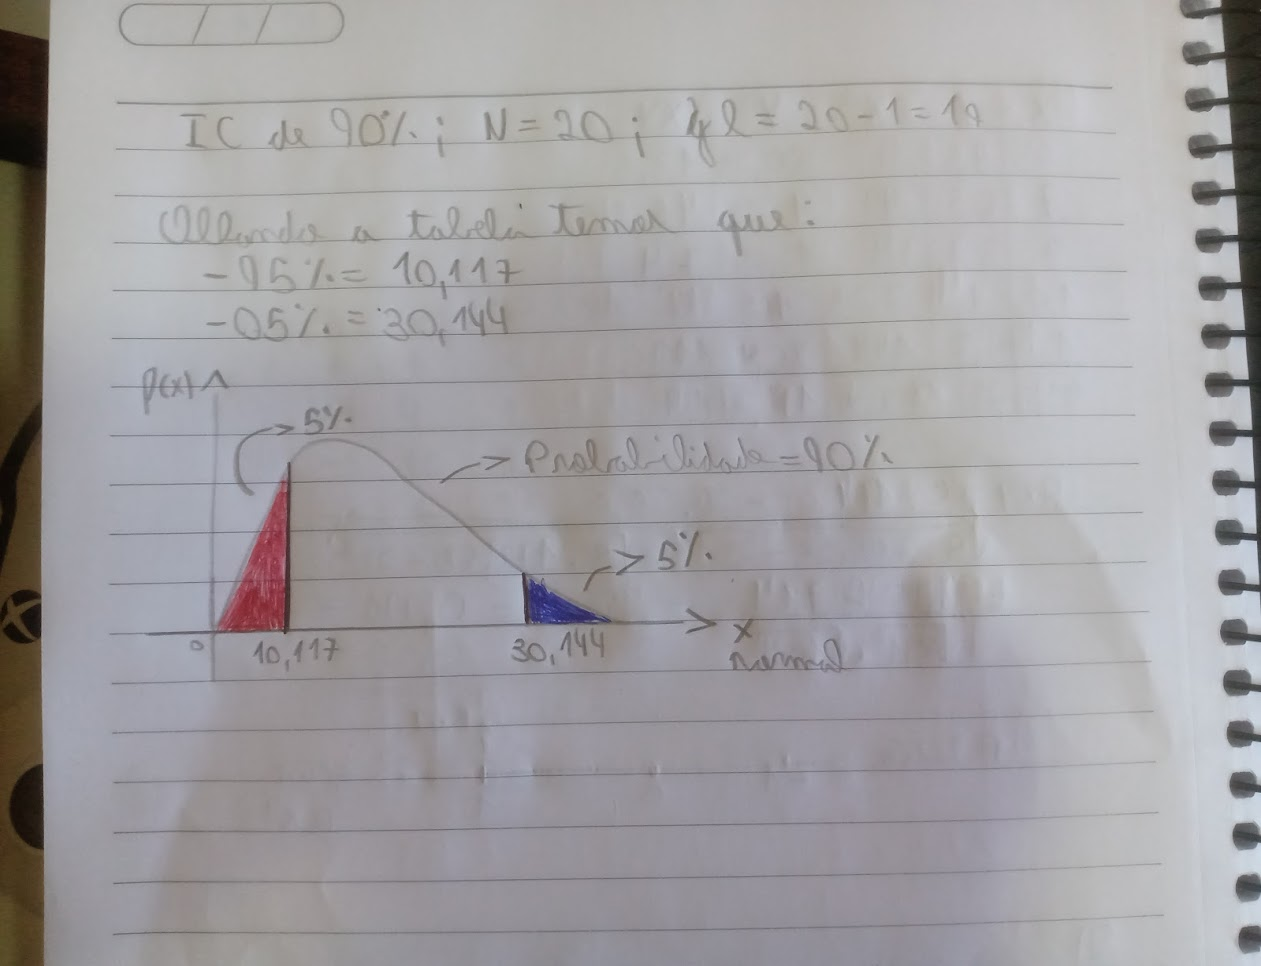 IC de 90%; N = 20; gl = 20 - 1 = 19
Olhando a tabela temos que:
- 95% = 10,117
- 05% = 30,144
P(x)
5%
Probabilidade = 90%
5%
0
10,117
30,144
x
normal